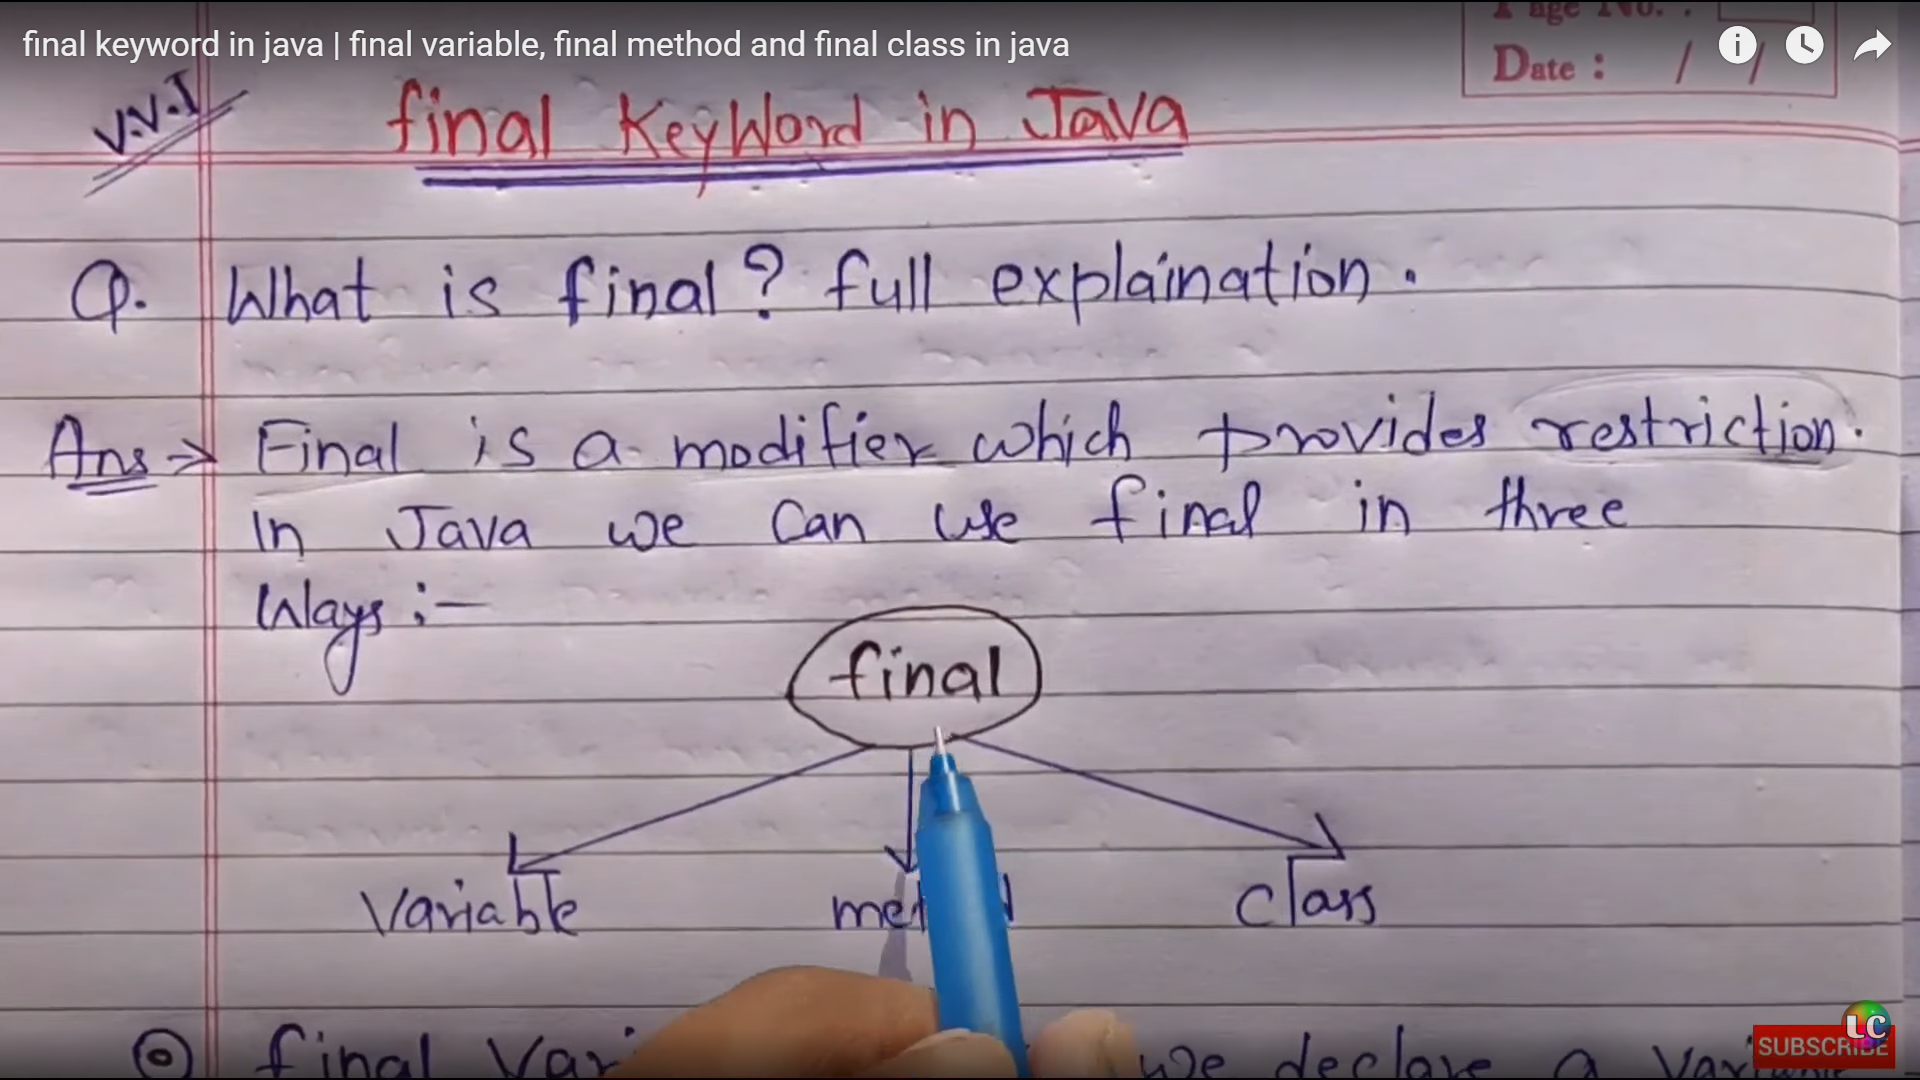 final keyword in java | final variable, final method and final class in java
Page No. :
Date : / /
V.V.I
final KeyWord in Java
Q. What is final? full explaination.
Ans → Final is a modifier which provides restriction.
In Java we can use final in three
Ways :-
final
Variable
class
final Vari we declare a Variable
LC
SUBSCRIBE